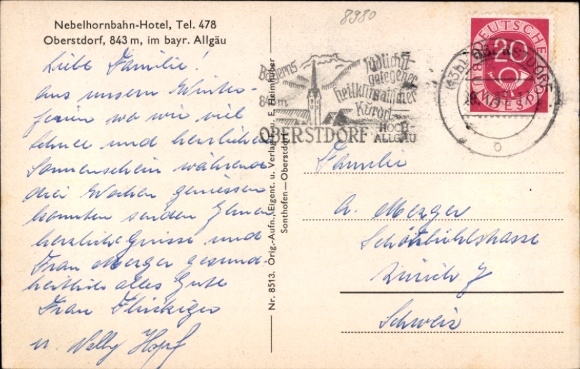 8980
Nebelhornbahn-Hotel, Tel. 478
Oberstdorf, 843 m, im bayr. Allgäu
Liebe Familie!
aus unsern Winter-
ferien wo wir viel
Schnee und herrlichen
Sonnenschein während
drei Wochen geniessen
konnten senden Ihnen
herzliche Grüsse und
Frau Merger gesund-
heitlich alles Gute
Frau Flückiger
u. Willy Hopf
Nr. 8513. Orig.-Aufn., Eigent. u. Verlag E. Heimhuber
Sonthofen—Oberstdorf
Bayerns südlichst
gelegener
heilklimatischer
Kurort
843 m
OBERSTDORF HOCH-
ALLGÄU
DEUTSCHE
BUNDESPOST
20
OBERSTDORF
Familie
A. Merger
Schönbühlstrasse
Zürich 7
Schweiz